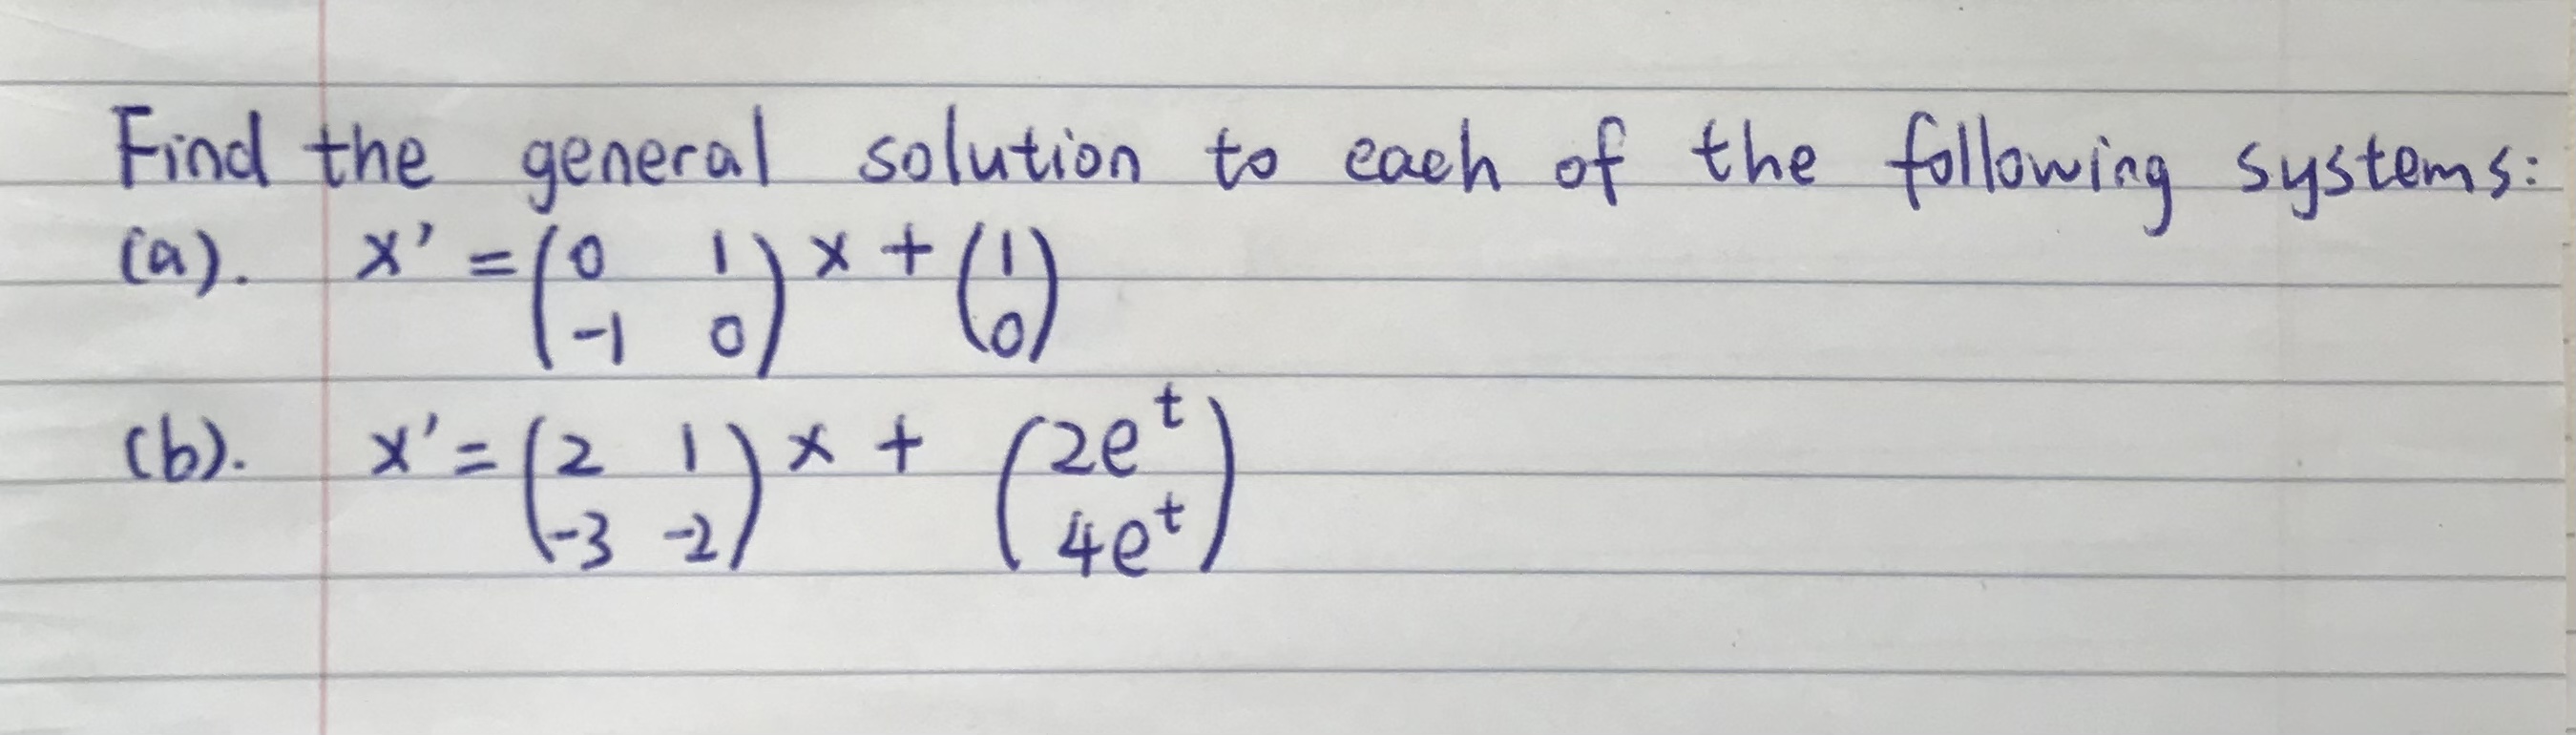 Find the general solution to each of the following systems:
(a). x' = (0 1
-1 0) x + (1
0)
(b). x' = (2 1
-3 -2) x + (2e^t
4e^t)